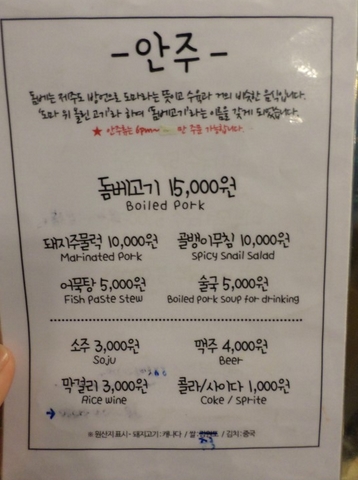 -안주-
돔베는 제주도 방언으로 도마라는 뜻이고 수육과 거의 비슷한 음식입니다.
'도마 위 올린 고기'라 하여 '돔베고기'라는 이름을 갖게 되었습니다.
★ 안주류는 6pm~ 만 주문 가능합니다.
돔베고기 15,000원
Boiled Pork
돼지주물럭 10,000원 골뱅이무침 10,000원
Marinated Pork Spicy Snail Salad
어묵탕 5,000원 술국 5,000원
Fish Paste Stew Boiled Pork Soup for drinking
소주 3,000원 맥주 4,000원
Soju Beer
막걸리 3,000원 콜라/사이다 1,000원
Rice wine Coke / Sprite
※ 원산지 표시 - 돼지고기 : 캐나다 / 쌀 : / 김치 : 중국